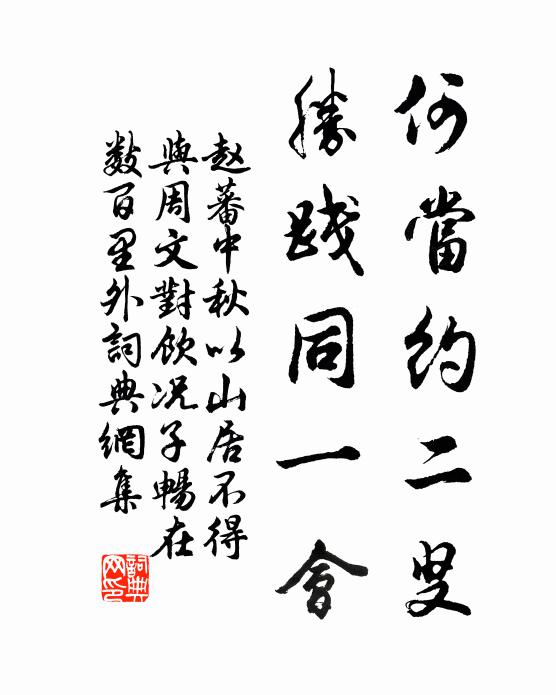 何當約二叟
勝踐同一會
赵蕃中秋以山居不得
與周文對飲况子暢在
數百里外詞典網集
詞典
网印